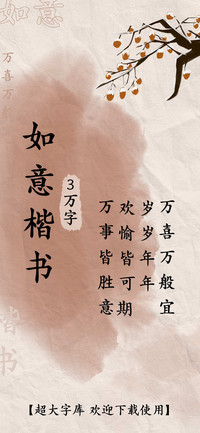 如意
万喜万
如意楷书
3万字
万喜万般宜
岁岁年年
欢愉皆可期
万事皆胜意
楷书
【超大字库 欢迎下载使用】